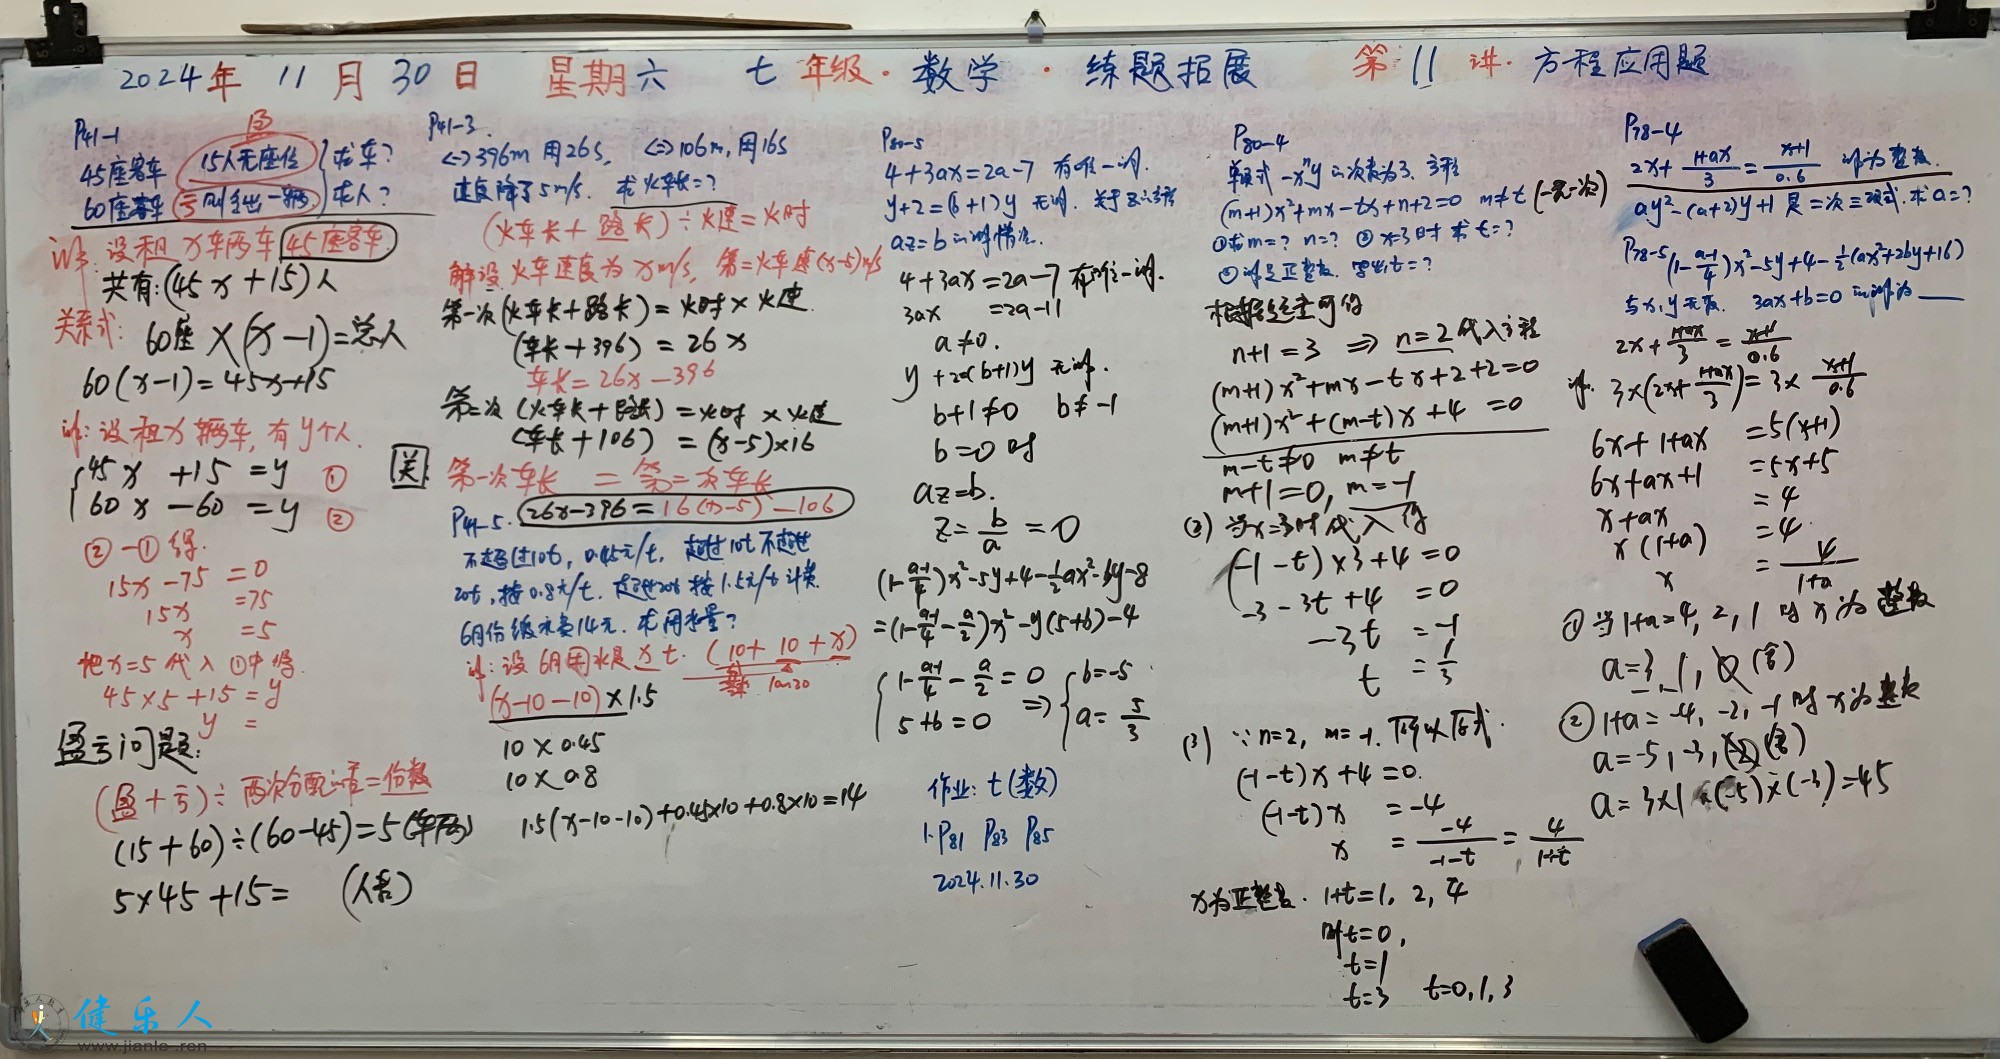 2024年 11月30日 星期六 七年级·数学·练题拓展 第11讲·方程应用题
P41-1
45座客车 15人无座位 求车?
60座客车 亏 则多出一辆 求人?
解:设租x车两车 45座客车
共有:(45x+15)人
关系式: 60座×(x-1)=总人
60(x-1)=45x+15
解:设租x辆车,有y个人.
45x +15 =y ①
60x -60 =y ②
②-①得.
15x-75 =0
15x =75
x =5
把x=5代入①中得.
45×5+15=y
y =
盈亏问题:
(盈+亏)÷两次分配之差=份数
(15+60)÷(60-45)=5(车两)
5×45+15= (人数)
P41-3.
<->396m 用26s, <->106m,用16s
速度降了5m/s. 求火车长=?
(火车长+路长)÷火速=火时
解设火车速度为xm/s, 第二火车速(x-5)m/s
第一次(火车长+路长)=火时×火速
(车长+396) = 26x
车长=26x-396
第二次(火车长+路长)=火时×火速
(车长+106) =(x-5)×16
关 第一次车长 = 第二次车长
26x-396=16(x-5)-106
P41-5.
不超过10t, 0.45元/t, 超过10t不超过
20t,按0.8元/t. 超过20t按1.5元/t计费.
6月份缴水费14元. 求用水量?
解:设6月用水是x t. (10+10+x)
(x-10-10)×1.5
10×0.45
10×0.8
1.5(x-10-10)+0.45×10+0.8×10=14
P80-5
4+3ax=2a-7 有唯一解.
y+2=(b+1)y 无解. 关于z的方程
az=b的解情况.
4+3ax=2a-7有唯一解.
3ax =2a-11
a≠0.
b+1≠0 b≠-1
b=0时
az=b.
z=b/a =0
(1-(a-1)/4)x²-5y+4-½ax²-by-8
=(1-(a-1)/4-a/2)x²-y(5+b)-4
1-(a-1)/4-a/2=0 ⇒ b=-5
5+b=0 a=5/3
作业:t(数)
1.P81 P83 P85
2024.11.30
P80-4
单项式-xⁿy的次数为3. 方程
(m+1)x²+mx-tx+n+2=0 m≠t (一元一次)
①求m=? n=? ②x=3时求t=?
③解是正整数. 写出t=?
根据题意可得
n+1=3 ⇒ n=2代入方程
(m+1)x²+mx-tx+2+2=0
(m+1)x²+(m-t)x+4 =0
m-t≠0 m≠t
m+1=0, m=-1
(2) 当x=3时代入得
(-1-t)×3+4=0
-3-3t+4 =0
-3t =-1
t =1/3
(3) ∵n=2, m=-1. 所以原式.
(-1-t)x+4=0.
(-1-t)x =-4
x =-4/(-1-t)=4/(1+t)
x为正整数. 1+t=1, 2, 4
时t=0,
t=1
t=3 t=0,1,3
P78-4
2x+(1+ax)/3=(x+1)/0.6 解为整数.
ay²-(a+2)y+1是二次三项式.求a=?
P78-5(1-(a-1)/4)x²-5y+4-½(ax²+2by+16)
与x,y无关. 3ax+b=0的解为___
2x+(1+ax)/3=(x+1)/0.6
解. 3×(2x+(1+ax)/3)=3×(x+1)/0.6
6x+1+ax =5(x+1)
6x+ax+1 =5x+5
x+ax =4
x(1+a) =4
x =4/(1+a)
①当1+a=4,2,1时x为整数
a=3,1,0(舍)
②1+a=-4,-2,-1时x为整数
a=-5,-3,-2(舍)
a=3×1×(-5)×(-3)=45
健乐人
www.jianle.ren